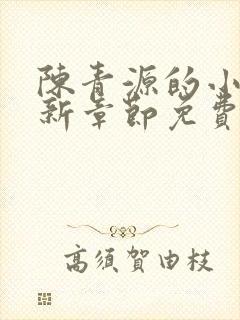 陳青源的小
新章節免費
高須賀由枝